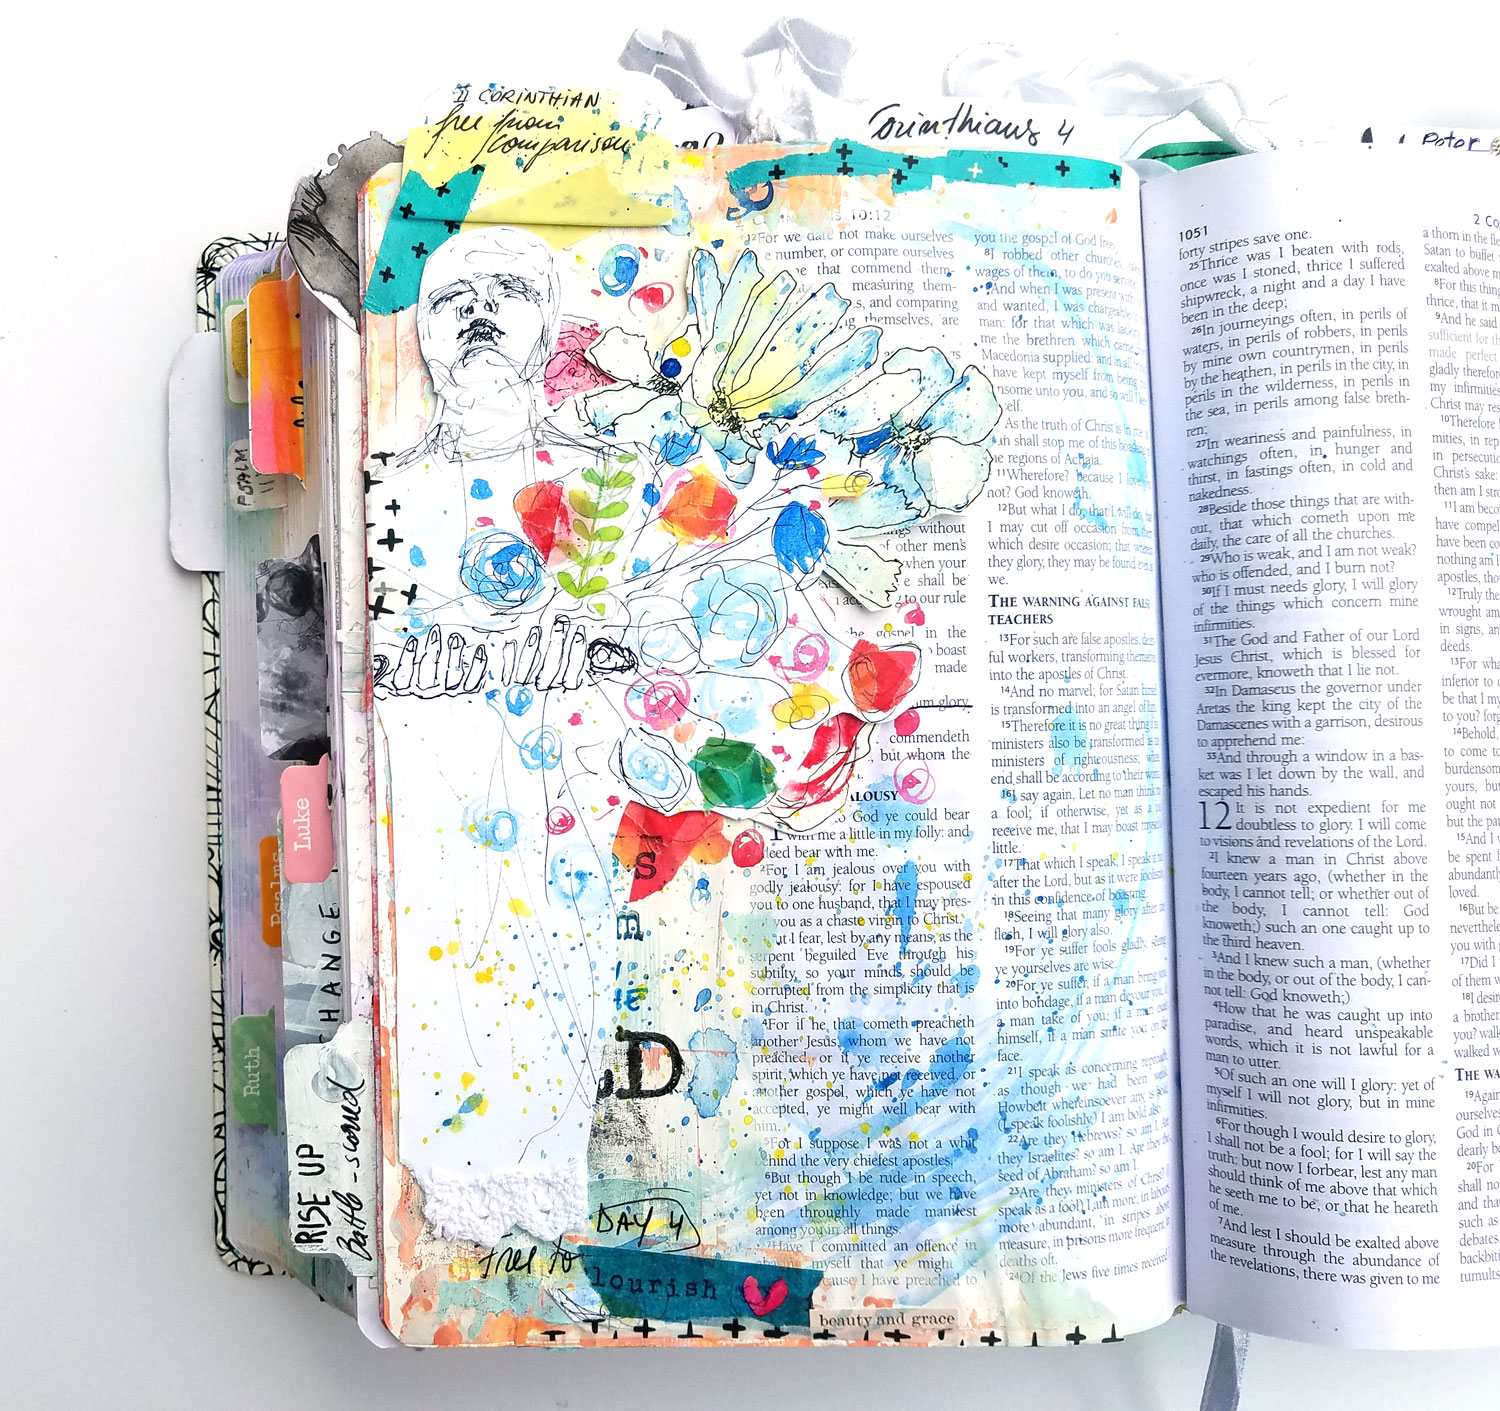 II CORINTHIAN
free from
comparison
Corinthians 4
Peter
PSALM
11
Luke
Psalms
CHANGE
Ruth
RISE UP
Battle-scarred
10:12
12For we dare not make ourselves
number, or compare ourselves
that commend them-
measuring them-
and comparing
themselves, are
without
of other men's
when your
shall be
to our rule
the gospel in the
boast
made
glory
commendeth
, but whom the
JEALOUSY
to God ye could bear
with me a little in my folly: and
indeed bear with me.
2For I am jealous over you with
godly jealousy: for I have espoused
you to one husband, that I may pres-
you as a chaste virgin to Christ.
But I fear, lest by any means, as the
serpent beguiled Eve through his
subtilty, so your minds should be
corrupted from the simplicity that is
in Christ.
4For if he that cometh preacheth
another Jesus, whom we have not
preached, or if ye receive another
spirit, which ye have not received, or
another gospel, which ye have not
accepted, ye might well bear with
him.
5For I suppose I was not a whit
behind the very chiefest apostles.
6But though I be rude in speech,
yet not in knowledge; but we have
been throughly made manifest
among you in all things.
7Have I committed an offence in
myself that ye might be
because I have preached to
you the gospel of God free
8I robbed other churches,
wages of them, to do you service
9And when I was present with
and wanted, I was chargeable
man: for that which was lacking
me the brethren which came
Macedonia supplied: and in all
I have kept myself from being
unto you, and so will I
myself.
As the truth of Christ is in me
shall stop me of this boasting
the regions of Achaia.
11Wherefore? because I love
not? God knoweth.
12But what I do, that I will do,
I may cut off occasion from
which desire occasion; that
they glory, they may be found even as
we.
THE WARNING AGAINST FALSE
TEACHERS
13For such are false apostles,
ful workers, transforming themselves
into the apostles of Christ.
14And no marvel; for Satan himself
is transformed into an angel of
15Therefore it is no great thing
ministers also be transformed as
ministers of righteousness; whose
end shall be according to their works.
16I say again, Let no man think
a fool; if otherwise, yet as a
receive me, that I may boast myself
little.
17That which I speak, I speak
after the Lord, but as it were foolish
in this confidence of boasting.
18Seeing that many glory after
flesh, I will glory also.
19For ye suffer fools gladly,
ye yourselves are wise.
20For ye suffer, if a man bring you
into bondage, if a man devour you,
a man take of you, if a man
himself, if a man smite you on the
face.
21I speak as concerning reproach,
as though we had been
Howbeit whereinsoever any is
(I speak foolishly,) I am bold also.
22Are they Hebrews? so am I. Are
they Israelites? so am I. Are they
seed of Abraham? so am I.
23Are they ministers of Christ?
speak as a fool) I am more; in
more abundant, in stripes above
measure, in prisons more frequent,
deaths oft.
24Of the Jews five times received
S
m
D
DAY 4
free to
lourish
beauty and grace
1051
forty stripes save one.
25Thrice was I beaten with rods,
once was I stoned, thrice I suffered
shipwreck, a night and a day I have
been in the deep;
26In journeyings often, in perils of
waters, in perils of robbers, in perils
by mine own countrymen, in perils
by the heathen, in perils in the city, in
perils in the wilderness, in perils in
the sea, in perils among false breth-
ren;
27In weariness and painfulness, in
watchings often, in hunger and
thirst, in fastings often, in cold and
nakedness.
28Beside those things that are with-
out, that which cometh upon me
daily, the care of all the churches.
29Who is weak, and I am not weak?
who is offended, and I burn not?
30If I must needs glory, I will glory
of the things which concern mine
infirmities.
31The God and Father of our Lord
Jesus Christ, which is blessed for
evermore, knoweth that I lie not.
32In Damascus the governor under
Aretas the king kept the city of the
Damascenes with a garrison, desirous
to apprehend me:
33And through a window in a bas-
ket was I let down by the wall, and
escaped his hands.
12 It is not expedient for me
doubtless to glory. I will come
to visions and revelations of the Lord.
2I knew a man in Christ above
fourteen years ago, (whether in the
body, I cannot tell; or whether out of
the body, I cannot tell: God
knoweth;) such an one caught up to
the third heaven.
3And I knew such a man, (whether
in the body, or out of the body, I can-
not tell: God knoweth;)
4How that he was caught up into
paradise, and heard unspeakable
words, which it is not lawful for a
man to utter.
5Of such an one will I glory: yet of
myself I will not glory, but in mine
infirmities.
6For though I would desire to glory,
I shall not be a fool; for I will say the
truth: but now I forbear, lest any man
should think of me above that which
he seeth me to be, or that he heareth
of me.
7And lest I should be exalted above
measure through the abundance of
the revelations, there was given to me
2 Co
a thorn in the
Satan to buffet
exalted above
8For this thing
thrice, that it
9And he said
sufficient for
made perfect
gladly therefore
my infirmities
Christ may
10Therefore
mities, in
in persecution
Christ's sake:
then am I
11I am
have
have been
nothing am I
apostles,
12Truly the
wrought
in signs, and
deeds.
13For
inferior to
be that I
to you?
14Behold,
to come to
burdensome
yours, but
ought not
but the
15And I
be spent
abundantly
loved.
16But be
nevertheless
you with
17Did I
of them
18I
a brother.
you?
walked
THE WA
19Again
ourselves
God in
dearly
20For
shall not
and that
such as
debates
tumults